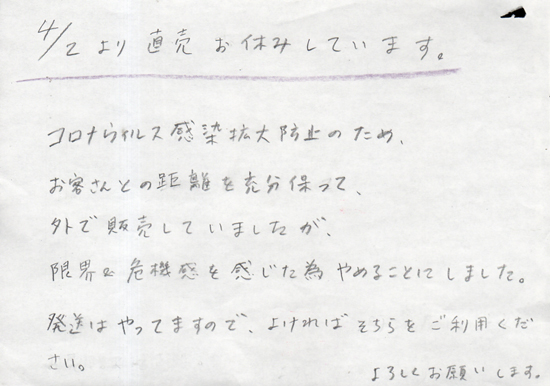 4/2 より 直売 お休みしています。
コロナウイルス感染拡大防止のため、
お客さんとの距離を充分保って、
外で販売していましたが、
限界や危機感を感じた為 やめることにしました。
発送はやってますので、よければそちらをご利用くだ
さい。
よろしくお願いします。